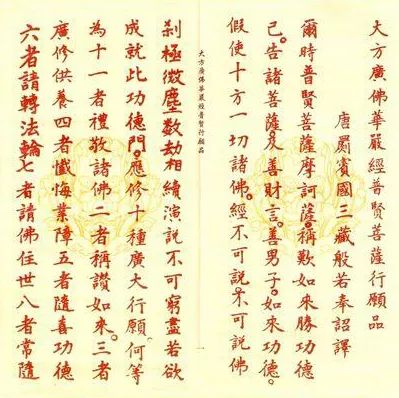 大方廣佛華嚴經普賢菩薩行願品
唐罽賓國三藏般若奉詔譯
爾時普賢菩薩摩訶薩。稱歎如來勝功德
已。告諸菩薩及善財言。善男子。如來功德。
假使十方一切諸佛。經不可說。不可說佛
大方廣佛華嚴經普賢行願品
一
剎極微塵數劫相續演說不可窮盡若欲
成就此功德門。應修十種廣大行願。何等
為十一者禮敬諸佛二者稱讚如來。三者
廣修供養四者懺悔業障五者隨喜功德
六者請轉法輪七者請佛住世八者常隨